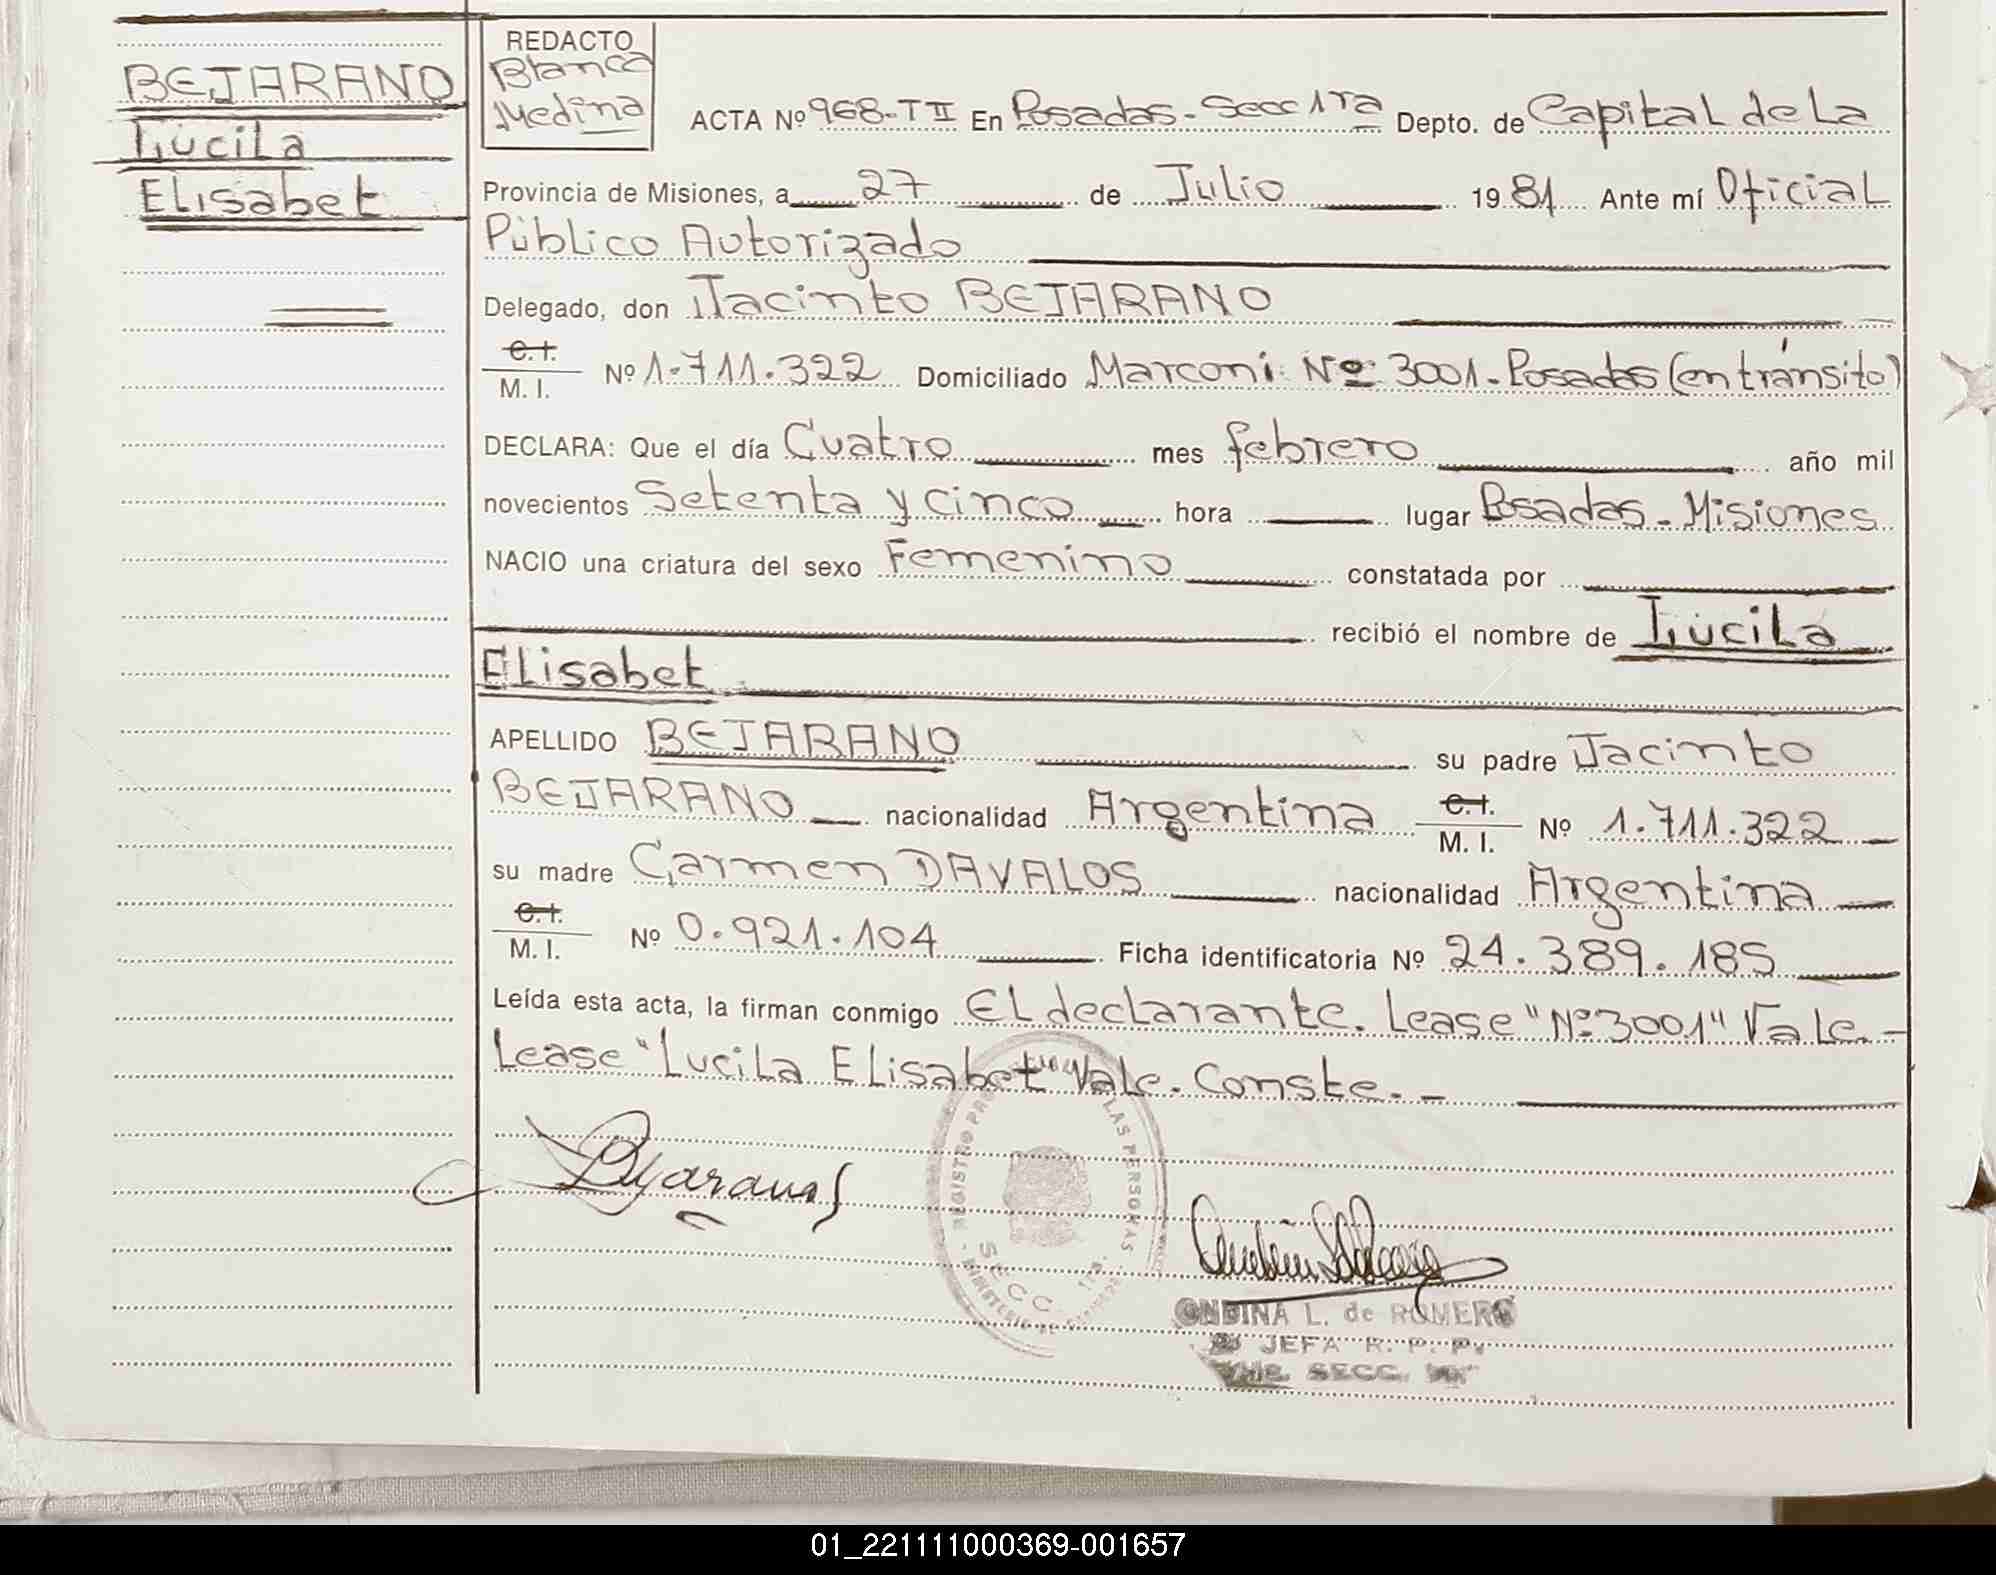 BEJARANO
Lucila
Elisabet
REDACTO
Blanca
Medina
ACTA Nº 968-T II En Posadas - Secc 1ra Depto. de Capital de La
Provincia de Misiones, a 27 de Julio 1981 Ante mí Oficial
Público Autorizado
Delegado, don Jacinto BEJARANO
C.I.
M. I. Nº 1.711.322 Domiciliado Marconi Nº 3001 - Posadas (en tránsito)
DECLARA: Que el día Cuatro mes febrero año mil
novecientos Setenta y cinco hora lugar Posadas - Misiones
NACIO una criatura del sexo Femenino constatada por
recibió el nombre de Lucila
Elisabet
APELLIDO BEJARANO su padre Jacinto
BEJARANO nacionalidad Argentina C.I. M. I. Nº 1.711.322
su madre Carmen DAVALOS nacionalidad Argentina
C.I.
M. I. Nº 0.921.104 Ficha identificatoria Nº 24.389.185
Leída esta acta, la firman conmigo El declarante. Lease "Nº 3001" Vale.-
Lease "Lucila Elisabet" Vale. Conste.-
Bejarano
REGISTRO LAS PERSONAS
SECC. 1ra.
ONDINA L. de ROMERO
JEFA R. P. P.
SECC.
01_221111000369-001657